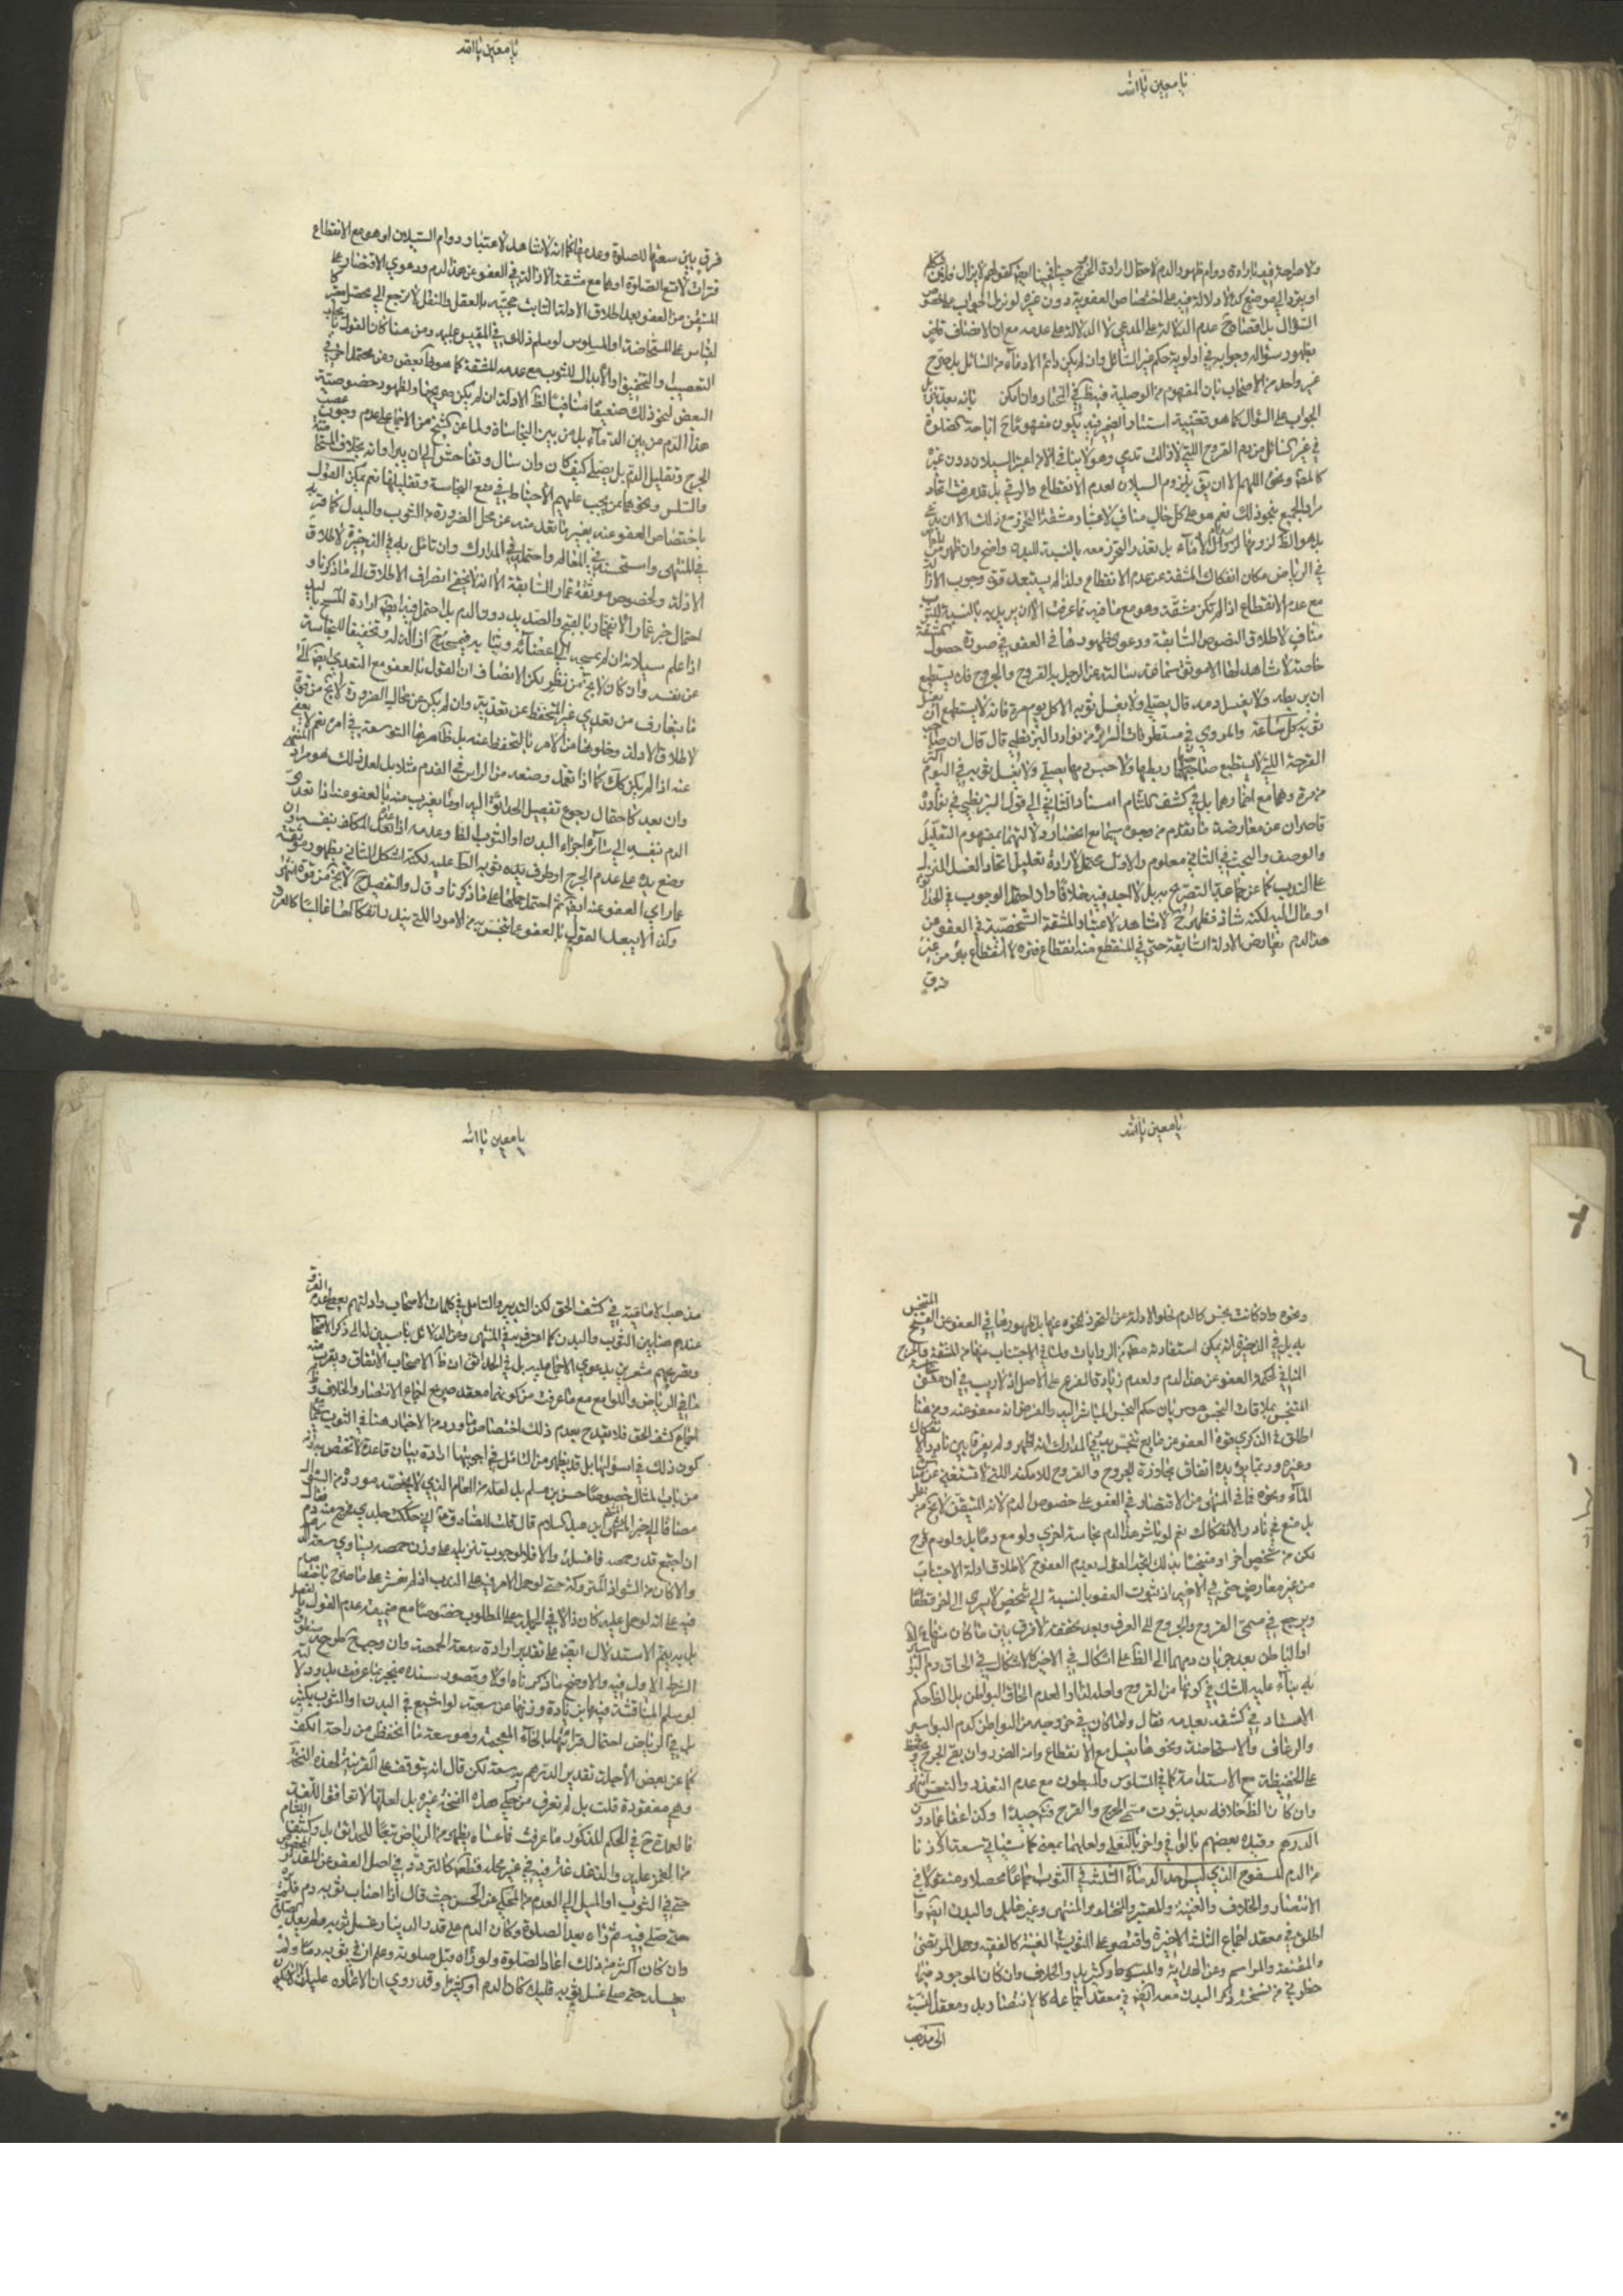 يا معين يا الله
ولا صراحة فيه بارادة دوام ظهور الدم لاحتمال ارادة الخروج حينا فحينا ايضا كقولهم لا يزال فلان يتكلم
او يتردد الى موضع كذا ولا دلالة فيه على اختصاص العفو به دون غيره لو نزل الجواب على خصوص
السؤال بل اقتضاؤه عدم الدلالة على المدعى لا الدلالة على عدمه مع ان الانصاف
بظهور سؤاله وجوابه في اولوية حكم غير السائل وان لم يكن دائم الادماء من السائل بل صرح
غير واحد من الاصحاب بان المفهوم من الوصلية
الجواب على السؤال كما هو قضية استناد الضمير فيه يكون مفهومًا اباحة الصلوة
في غير السائل من دم القروح التي لا تزال تدمي وهو لا ينافي الامر
اللهم الا ان يق بلزوم السيلان لعدم الانقطاع والرقي بل قد عرفت اتحاد
مراد الجميع بنحو ذلك نعم هو على كل حال مناف لاعتبار مشقة التحرز مع ذلك الا ان يدعى
بل تعذر التحرز معه بالنسبة للبدن واضح وان ظهر من
في الرياض مكان انفكاك المشقة عن عدم الانقطاع ولذا لم يستبعد قوة وجوب الازالة
مع عدم الانقطاع اذا لم تكن مشقة وهو مع منافيه لما عرفت الا ان يريد به بالنسبة للثوب
مناف لاطلاق النصوص السابقة ودعوى ظهورها في العفو في صورة حصول المشقة
خاصة لا شاهد لها الا موثق سماعة سالته عن الرجل به القروح والجروح فلا يستطيع
ان يربطه ولا يغسل دمه قال يصلي ولا يغسل ثوبه الا كل يوم مرة فانه لا يستطيع ان يغسل
ثوبه كل ساعة والمروي في مستطرفات السرائر من نوادر البزنطي قال قال ان صاحب
القرحة التي لا يستطيع صاحبها ربطها ولا حبس دمها يصلي ولا يغسل ثوبه في اليوم اكثر
من مرة وهما مع اضمارهما بل في كشف اللثام اسناد الثاني الى قول البزنطي في نوادره
قاصران عن معارضة ما تقدم من وجوه سيما مع انحصار دلالتهما بمفهوم التعليل
والوصف والبحث في الثاني معلوم والاول محتمل لارادة تعليل اتحاد الغسل المنزل
على الندب كما عن جماعة التصريح به بل لا اجد فيه خلافا وان احتمل الوجوب في الحدائق
او مال اليه لكنه شاذ فظهر ح لا شاهد لاعتبار المشقة الشخصية في العفو عن
هذا الدم يعارض الادلة السابقة حتى في المنقطع منه انقطاع فترة لا انقطاع برء من غير
فرق
يا معين يا الله
فرق بين سعتها للصلوة وعدمها كما انه لا شاهد لاعتبار دوام السيلان او هو مع الانقطاع
فترات لا تسع الصلوة او هما مع مشقة الازالة في العفو عن هذا الدم ودعوى الاقتصار على
المتيقن من العفو بعد اطلاق الادلة الثابت حجيته بالعقل والنقل لا ترجع الى محصل معتبر كالقياس
على المستحاضة او المسلوس لو سلم ذلك في المقيس عليه ومن هنا كان القول بايجاب
التعصيب والتخفيف او الابدال للثوب مع عدم المشقة كما هو ظ البعض وعن محتمل اخر في
البعض نحو ذلك ضعيفا منافيا لظ الادلة ان لم يكن صريحها ولظهور خصوصية
هذا الدم من بين الدماء بل من بين النجاسات ولما عن الشيخ من الاجماع على عدم وجوب عصب
الجرح وتقليل الدم بل يصلي كيف كان وان سال وتفاحش الى ان يبرا وانه بخلاف المستحاضة
والسلس ونحوهما ممن يجب عليهم الاحتياط في منع النجاسة وتقليلها نعم يمكن القول
باختصاص العفو عنه بغير ما تعد منه عن محل الضرورة من الثوب والبدل كما قربه
في المنتهى واستحسنه في المعالم واحتمله في المدارك وان تامل به في الذخيرة لاطلاق
الادلة ولخصوص موثقة عمار السابقة الا انه لا يخفى انصراف الاطلاق الى ما ذكرنا و
احتمال خبر عمار الانفجار بالقيح والصديد دون الدم بل احتمل فيه ايضا ارادة المسح باليد
اذا علم سيلانه ان لم يمسح الى اعضائه وثيابه فيمسح ح ازالة له وتخفيفا للنجاسة
عن نفسه وان كان لا يخ من نظر لكن الانصاف ان القول بالعفو مع التعدي ايضا كالي
ما يتعارف من تعدي غير المتحفظ عن تعديه وان لم يكن عن محاله الضرورة لا يخ من قوة
لاطلاق الادلة وخلوها من الامر بالتحفظ عنه بل ظاهرها التوسعة في امره نعم لا يعفى
عنه اذا لم يكن كذلك كما اذا تعمد وضعه من الراس في القدم مثلا بل لعل ذلك هو مراد المنتهى
وان بعد كاحتمال رجوع تفصيل الحدائق اليه او ما يقرب منه بالعفو عنه اذا تعدى
الدم بنفسه الى سائر اجزاء البدن او الثوب الظ وعدمه اذا تعمد المكلف بنفسه
وضع يده على دم الجرح او طرف ثوبه الط عليه لكنه اشكل الثاني بظهور موثقة
عمار في العفو عنه ايضا ثم احتمل حملها على ما ذكرنا وقال والتفصيل لا يخ من قوة انتهى
وكذا لا يبعد القول بالعفو عما تنجس به من الامور التي يندر انفكاكها غالبا كالعرق
يا معين يا الله
ونحوه وان كانت نجس كالدم لخلو الادلة عن التحرز لنحوه عنها بل ظهورها في العفو عن المتنجس
به بل في الذخيرة انه يمكن استفادته من الروايات ولما في الاجتناب عنها من المشقة والحرج
المنافي لحكمة العفو عن هذا الدم ولعدم زيادة الفرع على الاصل اذ لا ريب في ان معنى نجاسة
المتنجس بملاقات النجس هو سريان حكم النجس المباشر اليه والفرض انه معفو عنه ومن هنا
اطلق في الذكرى قوة العفو عن مايع تنجس به وفي المدارك انه اظهر ولم يفرقا بين نادر الانفكاك
وغيره وربما يؤيده اتفاق مجاوزة الجروح والقروح للامكنة التي لا تستغني عن مباشرة
الماء ونحوه فما في المنتهى من الاقتصار في العفو على خصوص الدم لانه المتيقن لا يخ من نظر
بل منع في نادر الانفكاك نعم لو باشر هذا الدم نجاسة اخرى ولو مع دما بل ولو دم جرح
لكن من شخص اخر او متنجسا بذلك اتجه القول بعدم العفو ح لاطلاق ادلة الاجتناب
من غير معارض حتى في الاخير اذ ثبوت العفو بالنسبة الى شخص لا يسري الى اخر قطعًا
ويرجع في مسمى القروح والجروح الى العرف وبعد تحققه لا فرق بين ما كان منها في الظاهر
او الباطن بعد جريان دمهما الى الظ على اشكال في الاخير كالاشكال في الحاق دم البواسير
به بناء عليه للشك في كونها من القروح واصله لها او لعدم الحاق البواطن بل الظ حكم
الاستاد في كشفه بعدمه فقال ولما كان في خروجه من البواطن كدم البواسير
والرعاف والاستحاضة ونحوها يغسل مع الانقطاع وامن الضرر وان بقي الجرح ويحتفظ
على الحفيظة مع الاستدامة كما في المسلوس والمبطون مع عدم التعذر والتعسر انتهى
وان كان الظ خلافه بعد ثبوت مسمى الجرح والقرح فتامل جيدا وكذا عفا عما دون
الدرهم وقيده بعضهم بالوافي واخر بالبغلي ولعلهما بمعنى كما سياتي سعة لا وزنا
من الدم المسفوح الذي ليس احد الدماء الثلثة في الثوب اجماعا محصلا ومنقولا في
الانتصار والخلاف والغنية والمعتبر والمختلف والمنتهى وغيرها بل والبدن ايضا وان
اطلق في معقد اجماع الثلثة الاخيرة واقتصر على الثوب في الغنية كالفقيه وجمل المرتضى
والمقنعة والمراسم وعن الهداية والمبسوط وكثير بل والخلاف وان كان الموجود فيما
حظرني من نسخته ذكر البدن معه ايضا في معقد اجماعه كالانتصار بل ومعقد النسبة
الى مذهب
يا معين يا الله
مذهب الامامية في كشف الحق لكن التدبر والتامل في كلمات الاصحاب وادلتهم يعطي عدم الفرق
عندهم هنا بين الثوب والبدن كما اعترف به في المنتهى وعن الدلائل ناسبين له الى ذكر الاصحاب
وتصريحهم مشعرين بدعوى الاجماع عليه بل في الحدائق ان ظ الاصحاب الاتفاق ويقرب منه
ما في الرياض واللوامع مع ما عرفت من كونهما معقد صريح اجماع الانتصار والخلاف وظ
اجماع كشف الحق فلا يقدح بعدم ذلك اختصاص ما ورد من الاخبار هنا في الثوب مع
كون ذلك في اسؤلتها بل قد يظهر من السائل في اجوبتها ارادة بيان قاعدة لا تختص به وانه
من باب المثال خصوصا حسن بن مسلم بل لعله من العام الذي لا يخصه مورده من السؤال
مضافا للخبر المنجبر عن مثنى بن عبد السلام قال قلت للصادق ع اني حككت جلدي فخرج منه دم فقال
ان اجتمع قدر حمصة فاغسله والا فلا لوجوب تنزيله على وزن حمصة يساوي سعة الدرهم
والا كان من الشواذ المتروكة حتى لو حمل الامر فيه على الندب اذ لم نعثر على ما صرح باختصاص
فيه على انه لو حمل عليه كان دالا في الجملة على المطلوب خصوصا مع ضميمة عدم القول بالفصل
بل يتم الاستدلال ايضا على تقدير ارادة سعة الحمصة وان وجب ح طرح منطوق
الشرط الاول فيه والاوضح ما ذكرناه اولا وقصور سنده منجبر بما عرفت بل ودلالته
لو سلم المناقشة فيها بزيادة وزنها عن سعته لو اشيع في البدن او الثوب بكثير
بل في الرياض احتمال قرائتها بالخاء المعجمة وهو سعة ما انخفض من راحة الكف
كما عن بعض الاجلة تقدير الدرهم به سعة لكن قال انه يتوقف على القرينة لهذه النسخة
وهي مفقودة قلت بل لم نعرف من حكى هذه النسخة غيره بل لعلها لا توافق اللغة
فالعمدة ح في الحكم المذكور ما عرفت فما عساه يظهر من الرياض تبعا للحدائق بل وكشف اللثام
من الغمز عليه والتامل فيه في غير محله قطعا كالتردد في اصل العفو عن المقدار المخصوص
حتى في الثوب او الميل الى العدم من المحكي عن الحسن حيث قال اذا اصاب ثوبه دم فلم يره
حتى صلى فيه ثم راه بعد الصلوة وكان الدم على قدر الدينار غسل ثوبه ولم يعد الصلوة
وان كان اكثر من ذلك اعاد الصلوة ولو راه قبل صلوته وعلم ان في ثوبه دما ولم
يغسله حتى صلى غسل ثوبه قليلا كان الدم او كثيرا وقد روي ان لا اعادة عليه